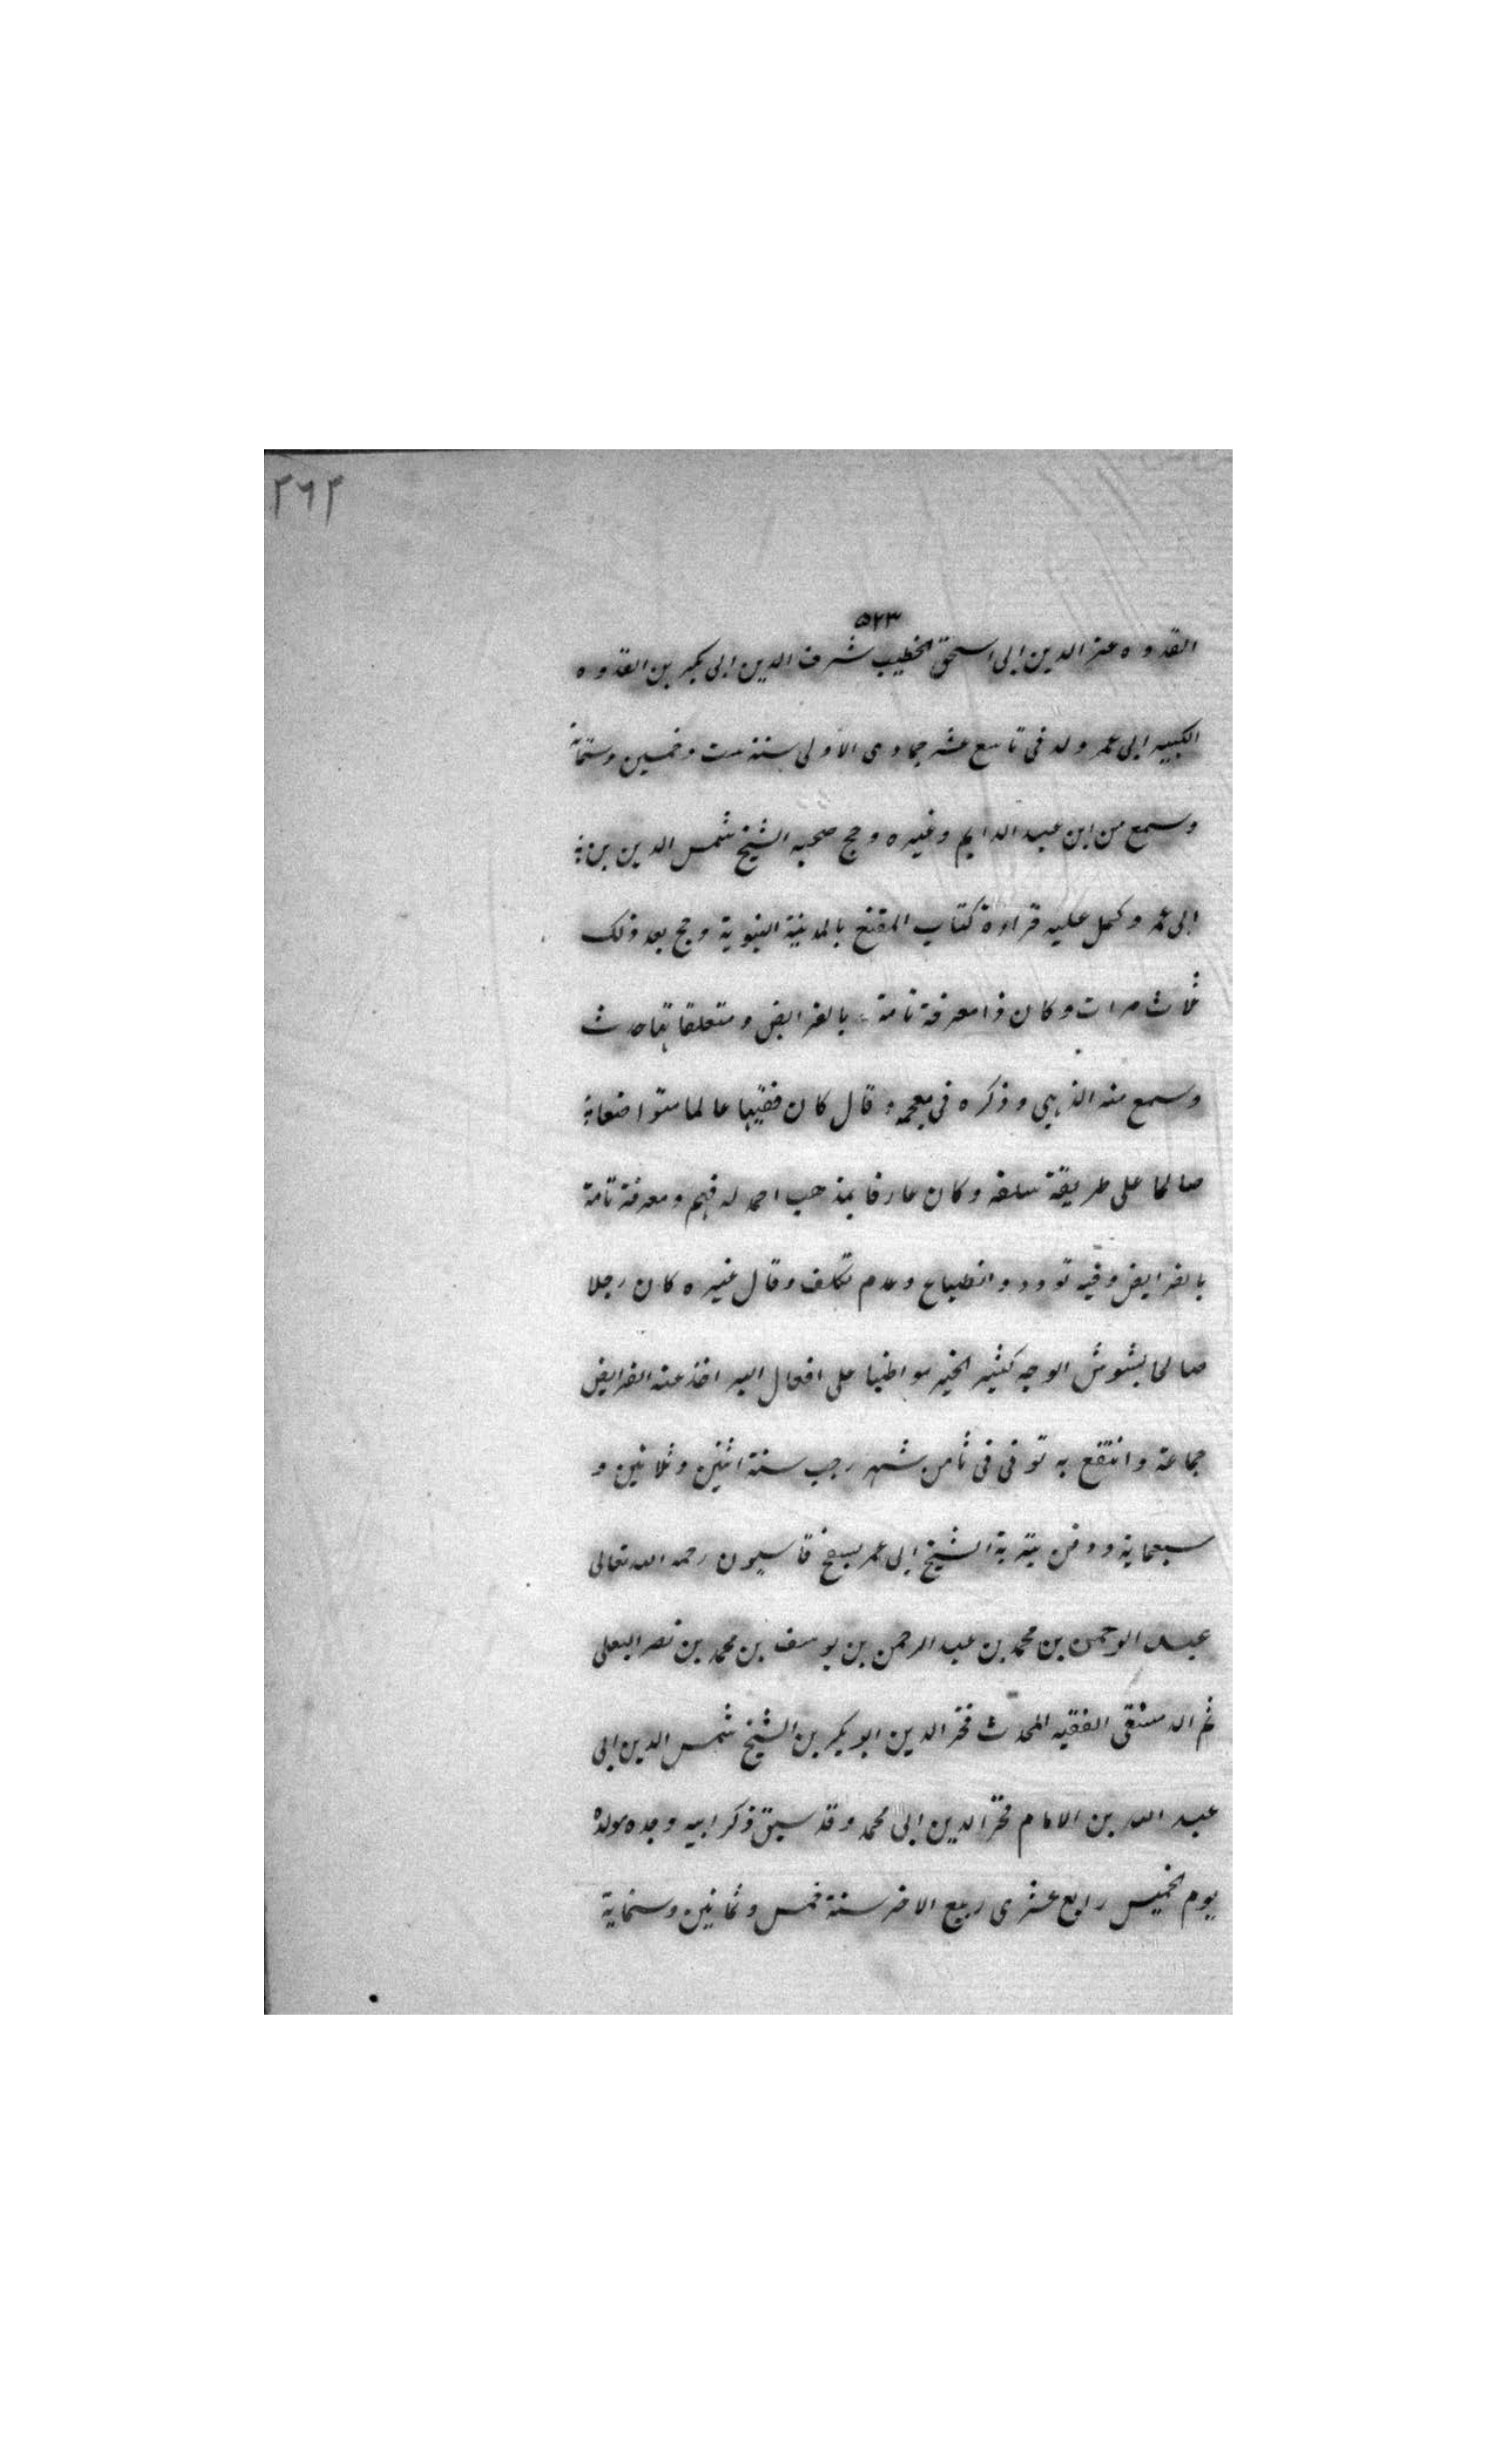 ٢٦٢
٥٢٣
القدوه عز الدين ابى اسحق الخطيب شرف الدين ابى بكر بن القدوه
الكبير ابى عمر ولد فى تاسع عشر جمادى الاولى سنة ست وخمسين وستمائة
وسمع من ابن عبد الدايم وغيره وحج صحبه الشيخ شمس الدين بن
ابى عمر وكمل عليه قراءة كتاب المقنع بالمدينة النبوية وحج بعد ذلك
ثلاث مرات وكان ذا معرفة تامة بالفرايض ومتعلقا
وسمع منه الذهبى وذكره فى معجمه وقال كان فقيها عالما متواضعا
صالحا على طريقة سلفه وكان عارفا بمذهب احمد له فهم ومعرفة تامة
بالفرايض وفيه تودد وانطباع وعدم تكلف وقال غيره كان رجلا
صالحا بشوش الوجه كثير الخير مواظبا على افعال البر اخذ عنه الفرايض
جماعة وانتفع به توفى فى ثامن شهر رجب سنة اثنين وثلاثين و
سبعماية ودفن بتربة الشيخ ابى عمر بسفح قاسيون رحمه الله تعالى
عبد الرحمن بن محمد بن عبد الرحمن بن يوسف بن محمد بن نصر البعلى
ثم الدمشقى الفقيه المحدث فخر الدين ابو بكر بن الشيخ شمس الدين ابى
عبد الله بن الامام فخر الدين ابى محمد وقد سبق ذكر ابيه وجده مولده
يوم الخميس رابع عشرى ربيع الاخر سنة خمس وثمانين وستماية